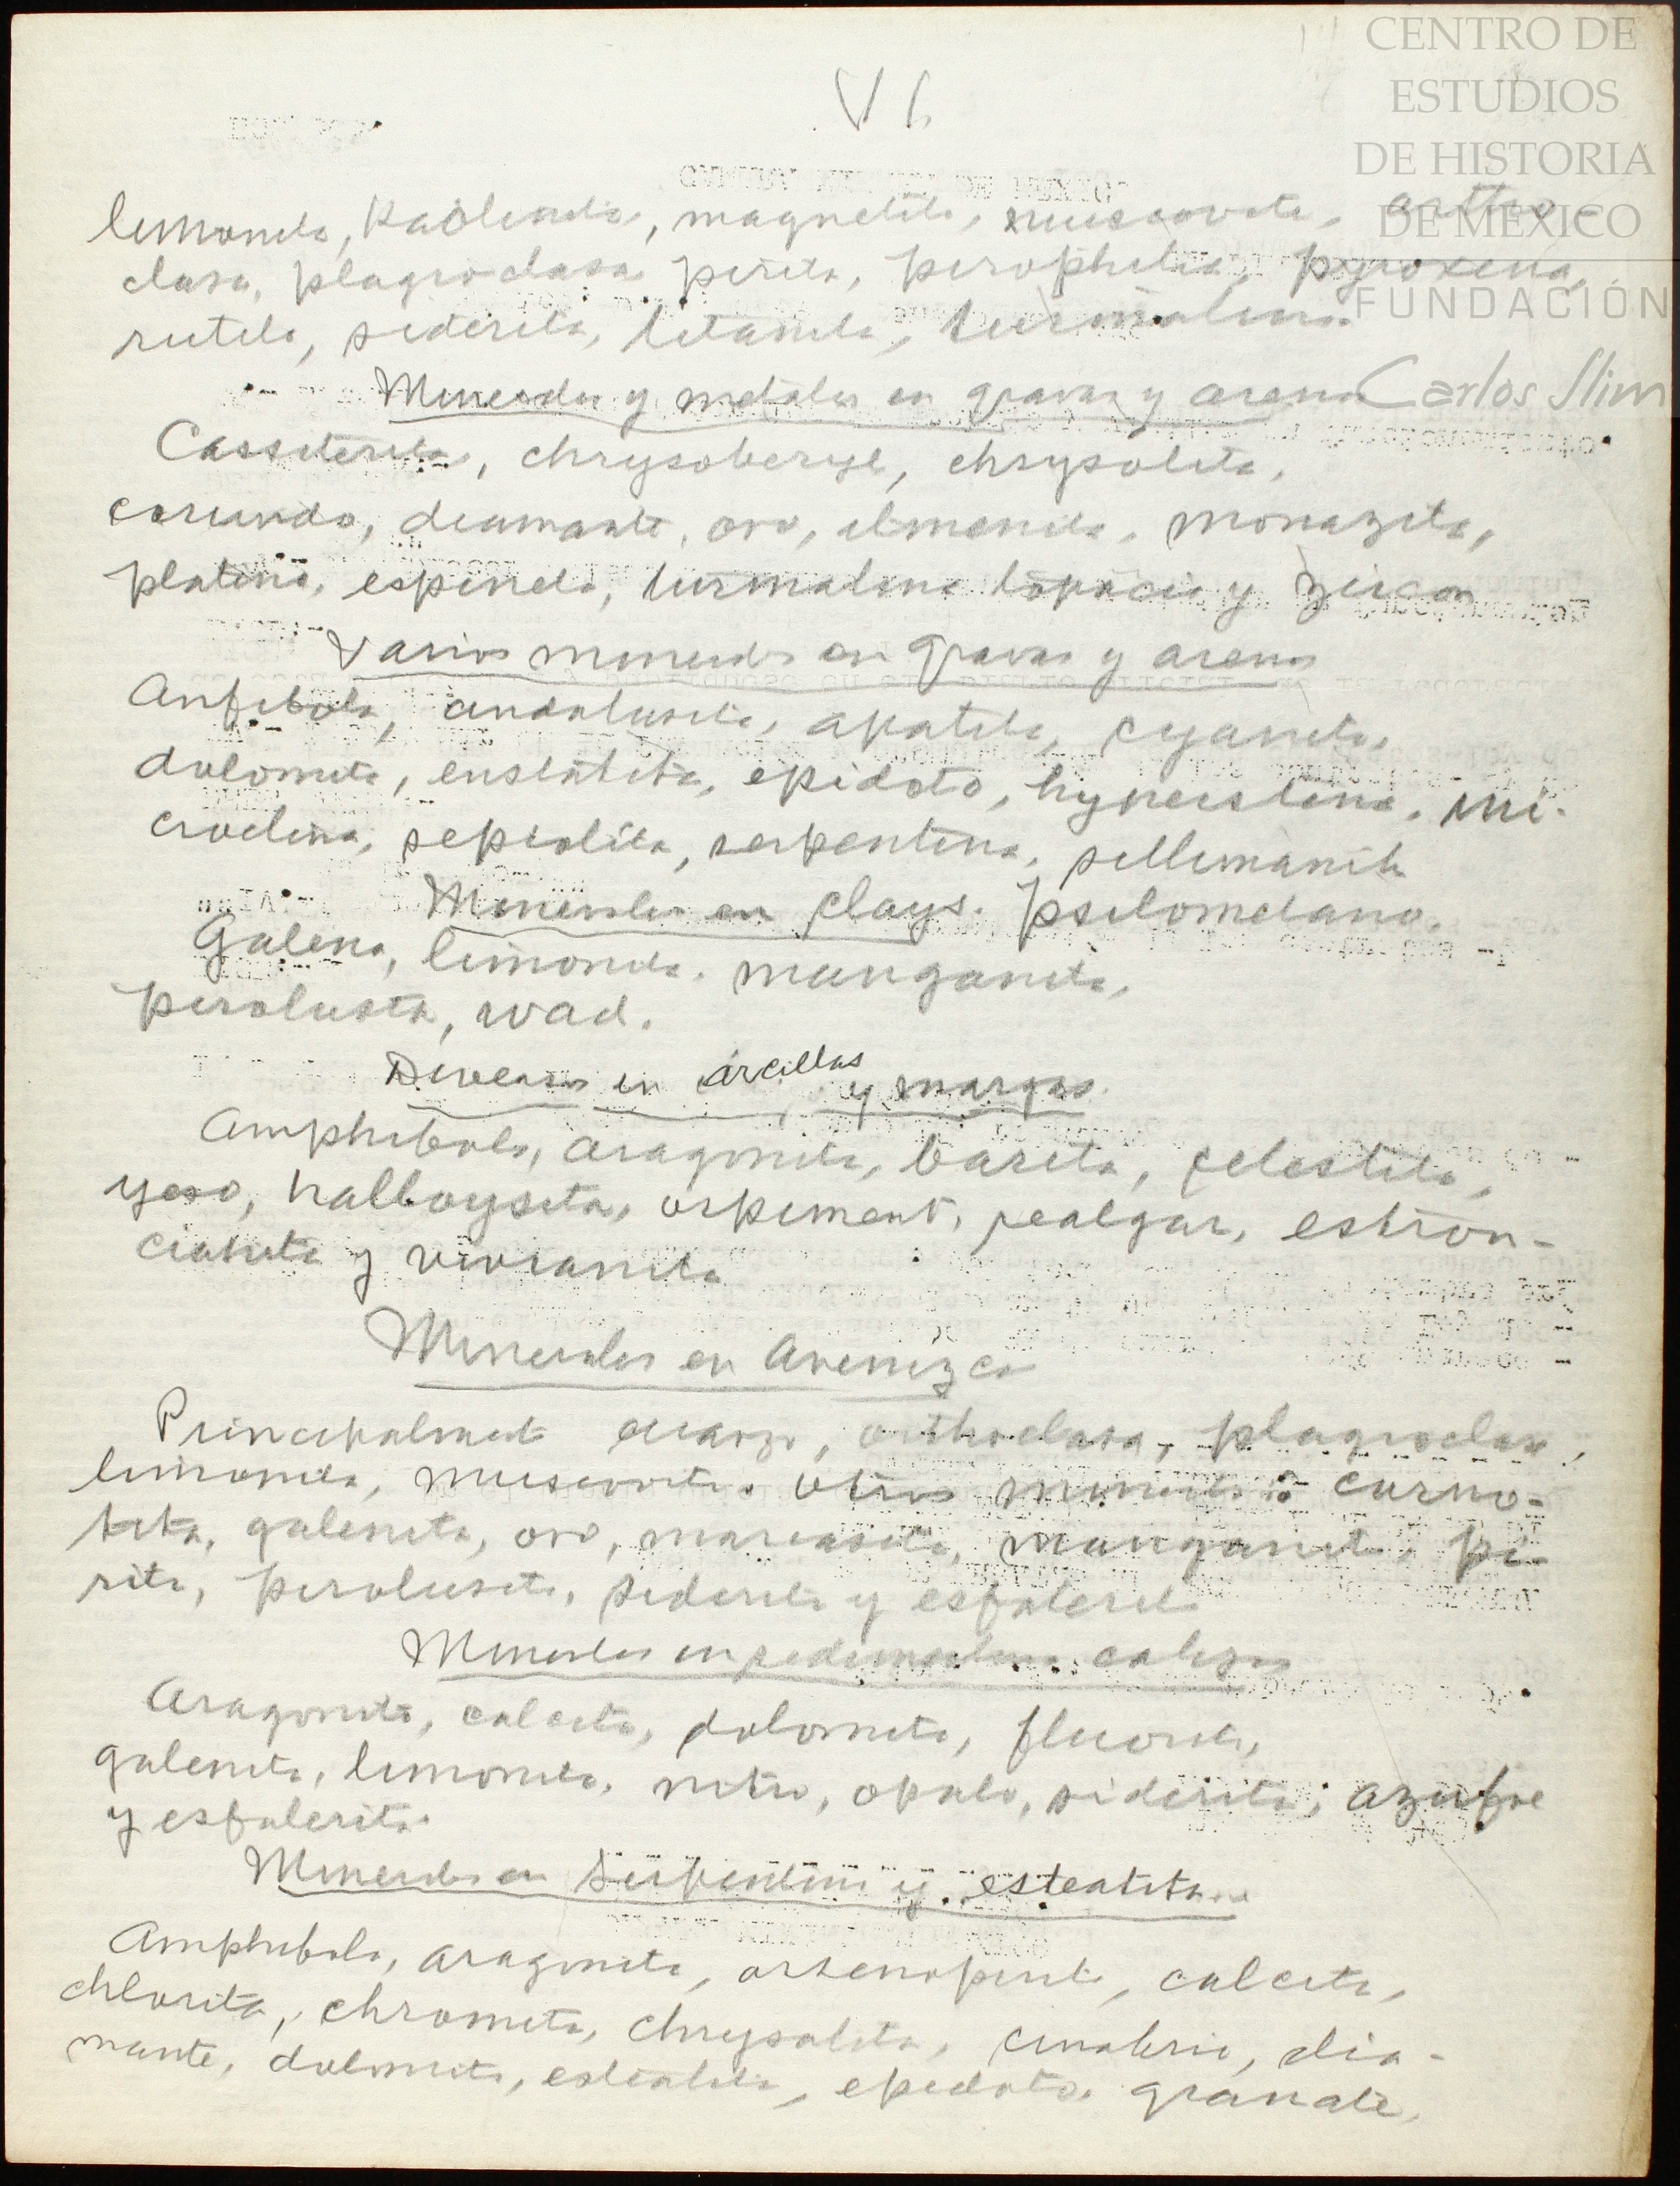 CENTRO DE
ESTUDIOS
DE HISTORIA
DE MÉXICO
FUNDACIÓN
Carlos Slim
VI.
limonita, Kaolinita, magnetita, muscovita, ortho-
clasa, plagioclasa pirita, pirophilita, pyroxena,
rutilo, siderita, titanita, turmalina.
Minerales y metales en gravas y arenas
Cassiterita, chrysoberyl, chrysolita,
corundo, diamante, oro, ilmenita, monazita,
platino, espinela, turmalina topacio y zircon
Varios minerales en gravas y arenas
Anfibola, andalusita, apatita, cyanita,
dolomita, enstatita, epidoto, hyperstena, mi-
croclina, sepiolita, serpentina, sillimanita
Minerales en clays. psilomelano,
Galena, limonita, manganita,
pirolusita, wad.
Diversos en arcillas
y margas.
Amphibola, aragonita, barita, celestita,
yeso, halloysita, orpiment, realgar, estron-
cianita y vivianita
Minerales en Arenizca
Principalmente cuarzo, orthoclasa, plagioclasa,
limonita, muscovita. Otros minerales: carno-
tita, galenita, oro, marcasita, manganita, pi-
rita, pirolusita, siderita y esfalerita
Minerales en sedimentos calizos
Aragonita, calcita, dolomita, fluorita,
galenita, limonita, nitro, opalo, siderita, azufre
y esfalerita.
Minerales en Serpentina y esteatita
Amphibola, aragonita, arsenopirita, calcita,
chlorita, chromita, chrysolita, cinabrio, dia-
mante, dolomita, esteatita, epidoto, granate,